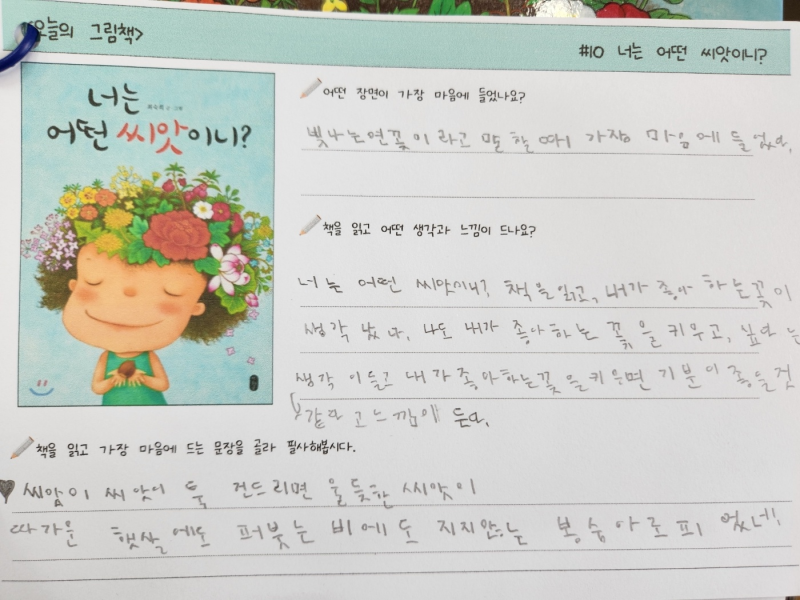 <오늘의 그림책>
#10 너는 어떤 씨앗이니?
너는
어떤 씨앗이니?
어떤 장면이 가장 마음에 들었나요?
빛나는연꽃이라고 말할때 가장 마음에 들었다.
책을 읽고 어떤 생각과 느낌이 드나요?
너는 어떤 씨앗이니? 책을읽고, 내가 좋아하는꽃이
생각 났다, 나도 내가 좋아하는 꽃을 키우고, 싶다 는
생각 이들고 내가좋아하는꽃을키우면 기분이 좋을것
같다고느낌이 든다.
책을 읽고 가장 마음에 드는 문장을 골라 필사해봅시다.
♥ 씨앗이 씨앗이 툭 건드리면 울듯한 씨앗이
따가운 햇살에도 퍼붓는 비에도 지지않는 봉숭아로 피었네!